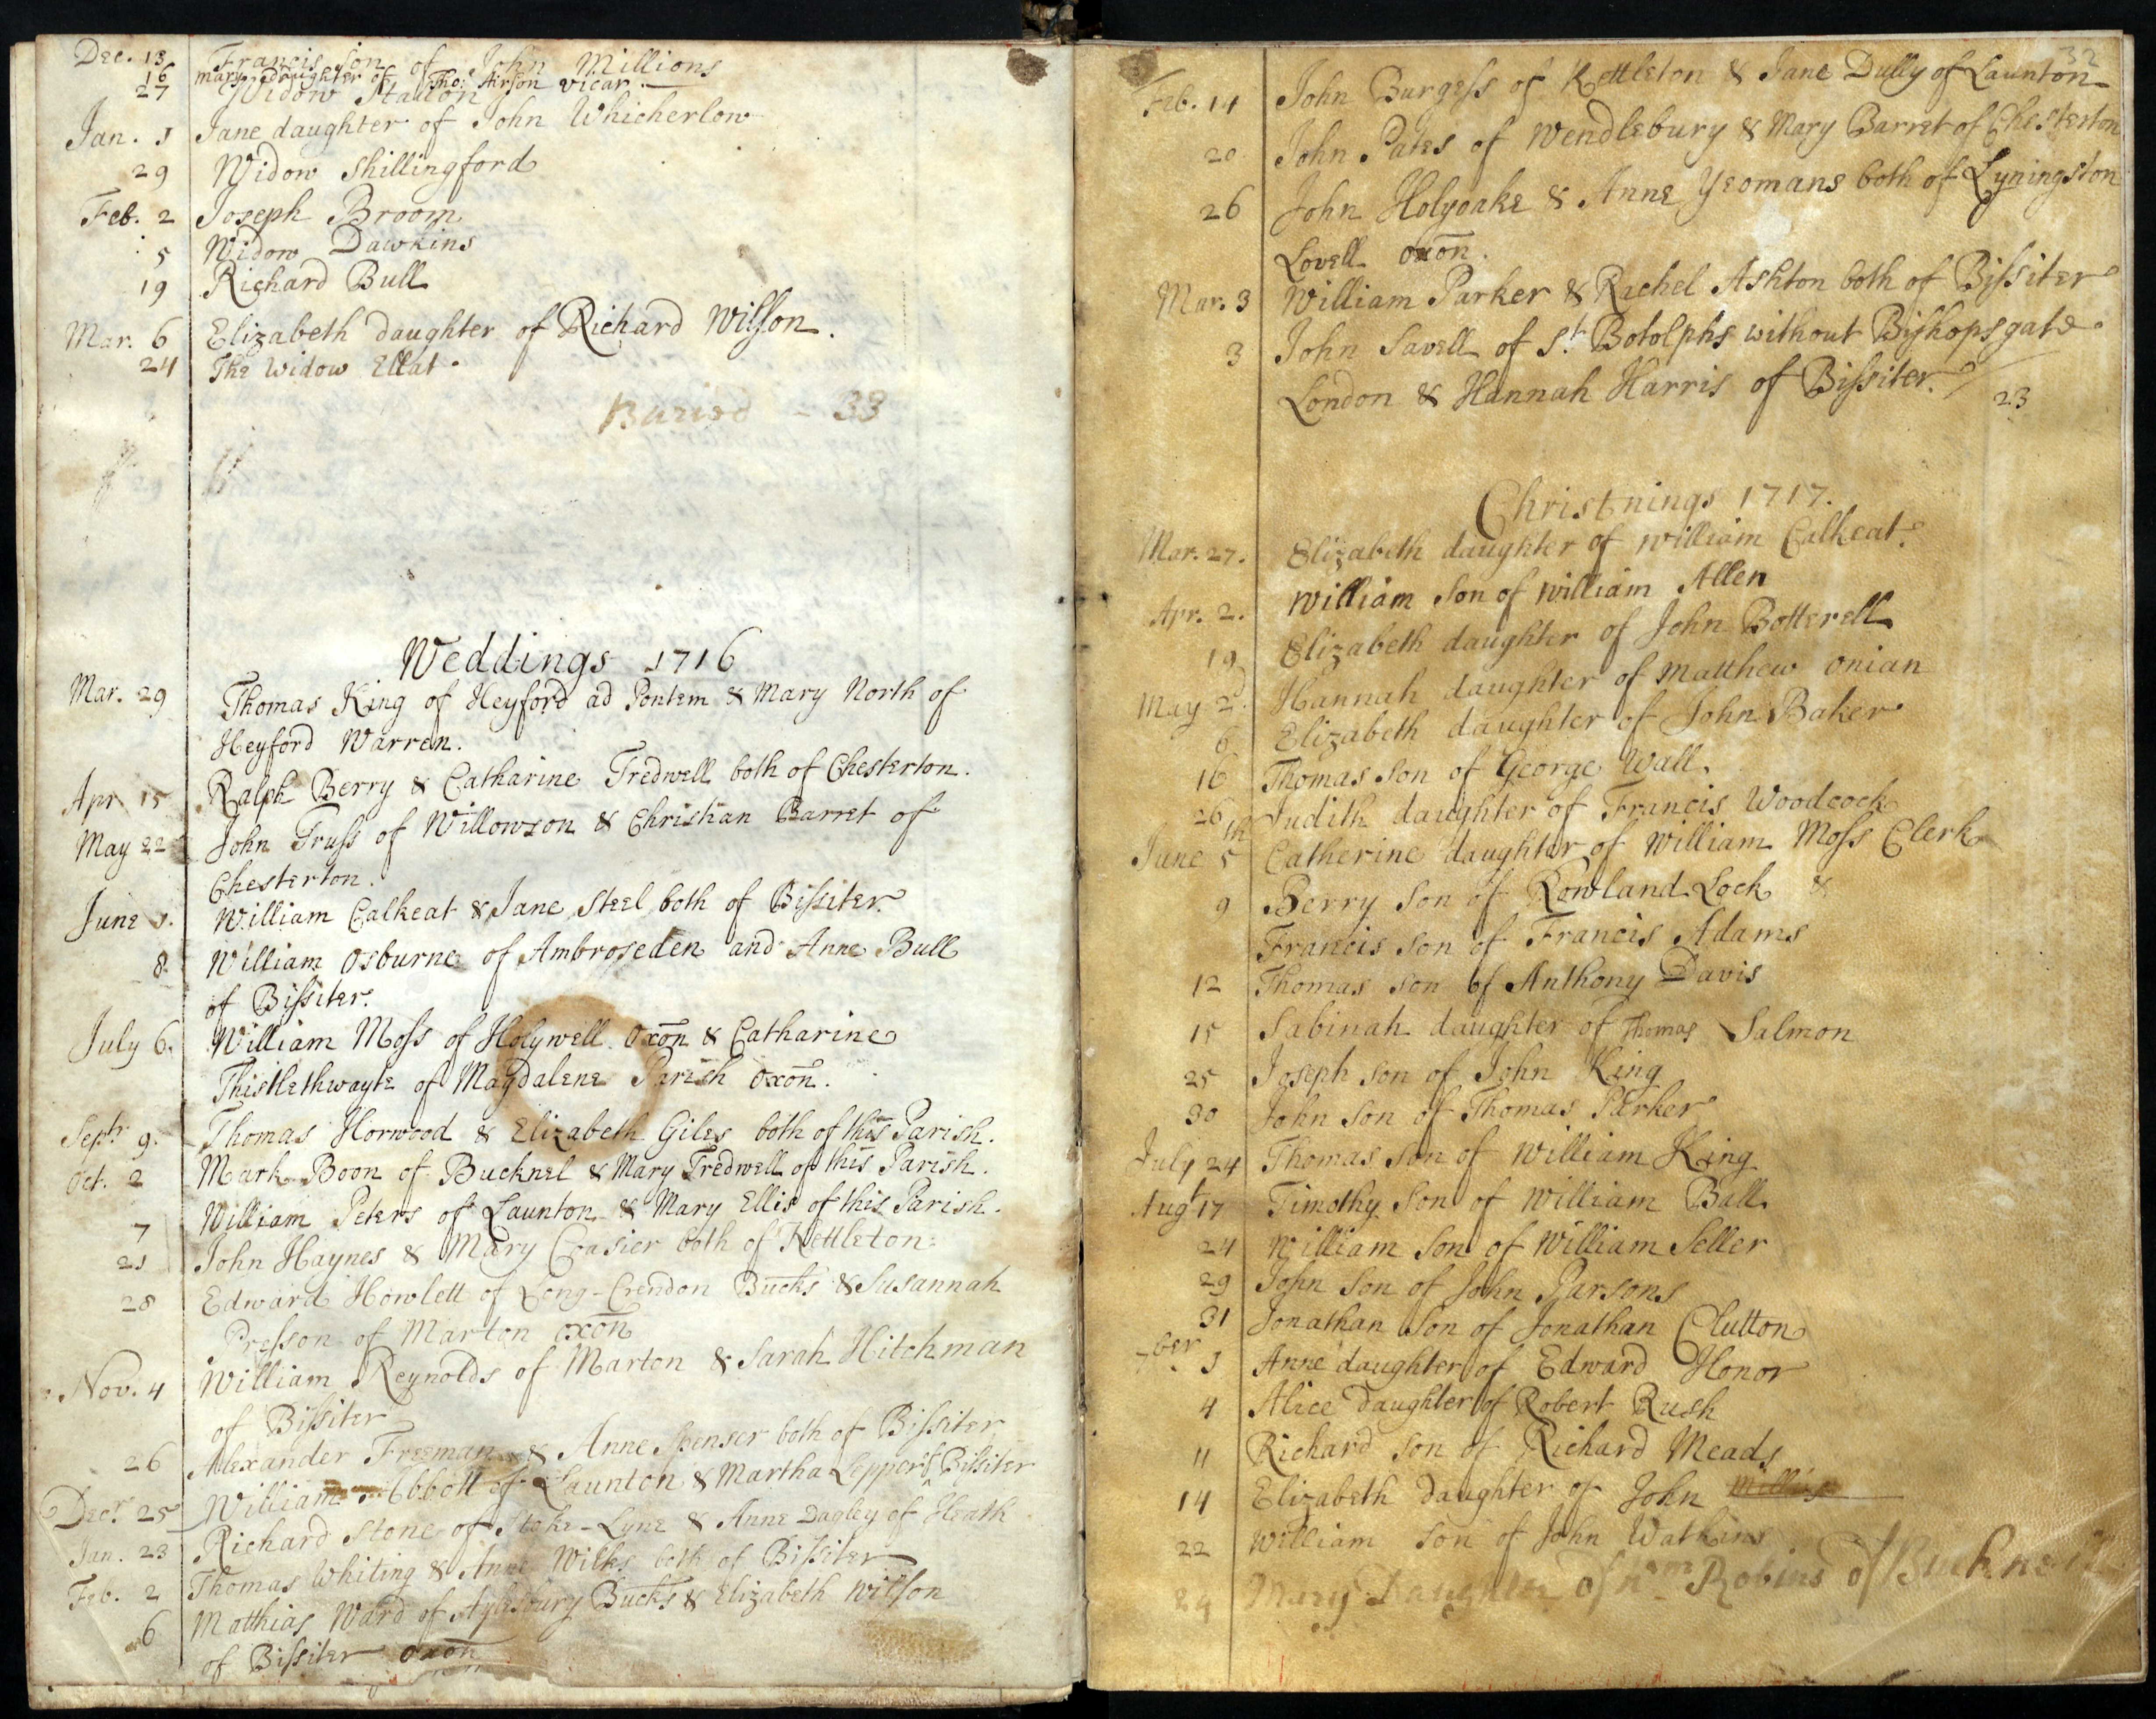 Dec. 13 Francis son of John Millions
16 mary daughter of Tho: Airson vicar.
27 Widow
Jan. 1 Jane daughter of John Whicherlow
29 Widow Shillingford
Feb. 2 Joseph Broom
5 Widow Dawkins
19 Richard Bull
Mar. 6 Elizabeth daughter of Richard Wilson.
24 The Widow Ellat.
Buried - 33
Weddings 1716
Mar. 29 Thomas King of Heyford ad Pontem & Mary North of
Heyford Warren.
Apr. 15 Ralph Berry & Catharine Tredwell both of Chesterton.
May 22 John Truss of Willowson & Christian Barret of
Chesterton.
June 1. William Calkeat & Jane Steel both of Bissiter
8. William Osburne of Ambroseden and Anne Bull
of Bissiter.
July 6. William Moss of Holywell Oxon & Catharine
Thistlethwayte of Magdalene Parish Oxon.
Septr 9. Thomas Horwood & Elizabeth Giles both of this Parish.
Oct. 2 Mark Boon of Bucknel & Mary Tredwell of this Parish.
7 William Peters of Launton & Mary Ellis of this Parish.
21 John Haynes & Mary Coasier both of Kettleton
28 Edward Howlett of Long-Crendon Bucks & Susannah
Presson of Marton Oxon
Nov. 4 William Reynolds of Marton & Sarah Hitchman
of Bissiter
26 Alexander Freeman & Anne Spenser both of Bissiter
Decr. 25 William Abbott of Launton & Martha Lepper of Bissiter
Jan. 23 Richard Stone of Stoke-Lyne & Anne Dagley of Heath
Feb. 2 Thomas Whiting & Anne Wilks both of Bissiter
6 Matthias Ward of Aylesbury Bucks & Elizabeth Wilson
of Bissiter Oxon
32
Feb. 14 John Burgess of Kettleton & Jane Dully of Launton
20 John Pates of Wendlebury & Mary Barret of Chesterton
26 John Holyoake & Anne Yeomans both of Lyningston
Lovell Oxon.
Mar. 3 William Parker & Rachel Ashton both of Bissiter
3 John Savell of St. Botolphs without Bishopsgate
London & Hannah Harris of Bissiter.
23
Christnings 1717.
Mar. 27. Elizabeth daughter of William Calkeat.
Apr. 2. William son of William Allen
19 Elizabeth daughter of John Botterell
May 2. Hannah daughter of Matthew Onian
6 Elizabeth daughter of John Baker
16 Thomas son of George Wall.
26 Judith daughter of Francis Woodcock
June 5th Catherine daughter of William Moss Clerk
9 Berry son of Rowland Lock &
Francis son of Francis Adams
12 Thomas son of Anthony Davis
15 Sabinah daughter of Thomas Salmon
25 Joseph son of John King
30 John son of Thomas Parker
July 24 Thomas son of William King
Augt 17 Timothy son of William Ball
24 William son of William Seller
29 John son of John Parsons
31 Jonathan son of Jonathan Clutton
7ber 1 Anne daughter of Edward Honor
4 Alice daughter of Robert Rush
11 Richard son of Richard Meads
14 Elizabeth daughter of John
22 William son of John Watkins
24 Mary Daughter of Wm Robins of Bucknell